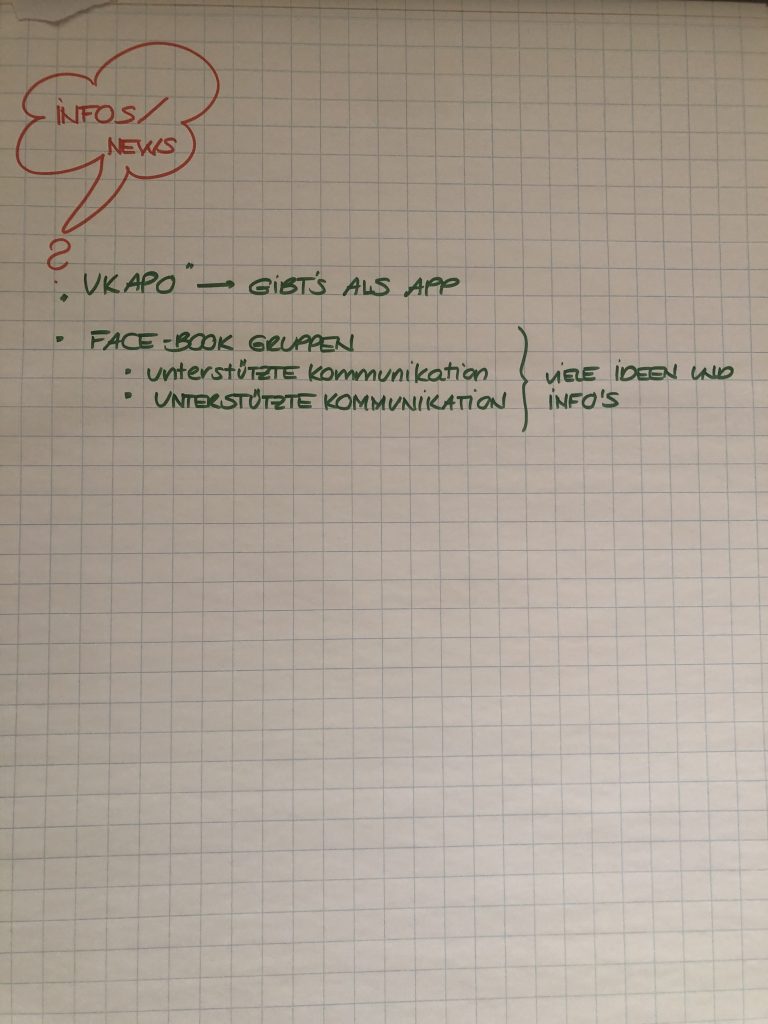 INFOS/
NEWS
?
• UKAPO" → GIBT'S ALS APP
• FACE-BOOK GRUPPEN
• unterstützte kommunikation
• UNTERSTÜTZTE KOMMUNIKATION } VIELE IDEEN UND
INFO'S